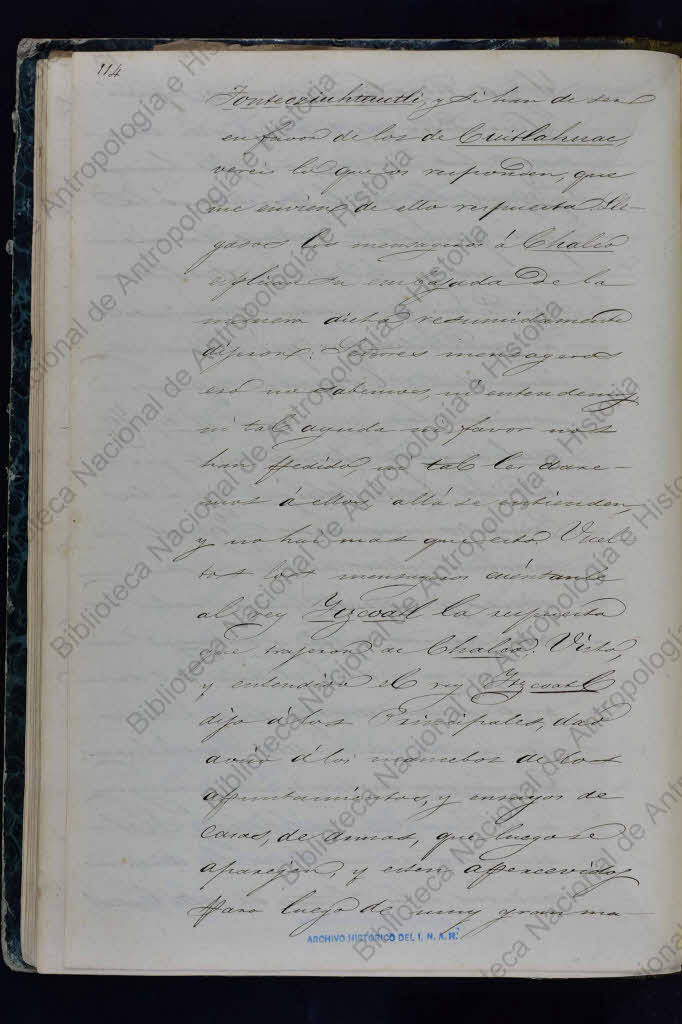 114
Tonteoziuhteuctli, y si han de ser
en favor de los de Cuitlahuac,
vereis lo que os responden, que
me envien de ello respuesta. Lle-
gados los mensageros á Chalco
esplican su embajada de la
manera dicha, resumidamente
dijeron: Señores mensageros
eso no sabemos, ni entendemos,
ni tal ayuda ni favor nos
han pedido, ni tal les dare-
mos á ellos, allá se entienden,
y no hai mas que esto. Vuel-
tos los mensageros cuéntanle
al rey Itzcoatl la respuesta
que trajeron de Chalco. Visto,
y entendido el rey Itzcoatl
dijo á los Principales, dad
aviso á los mancebos de los
apuntamientos, y ensayos de
casas, de armas, que luego se
aparejen, y esten apercevidos
para luego de muy gran ma-
ARCHIVO HISTORICO DEL I. N. A. H.
Biblioteca Nacional de Antropología e Historia